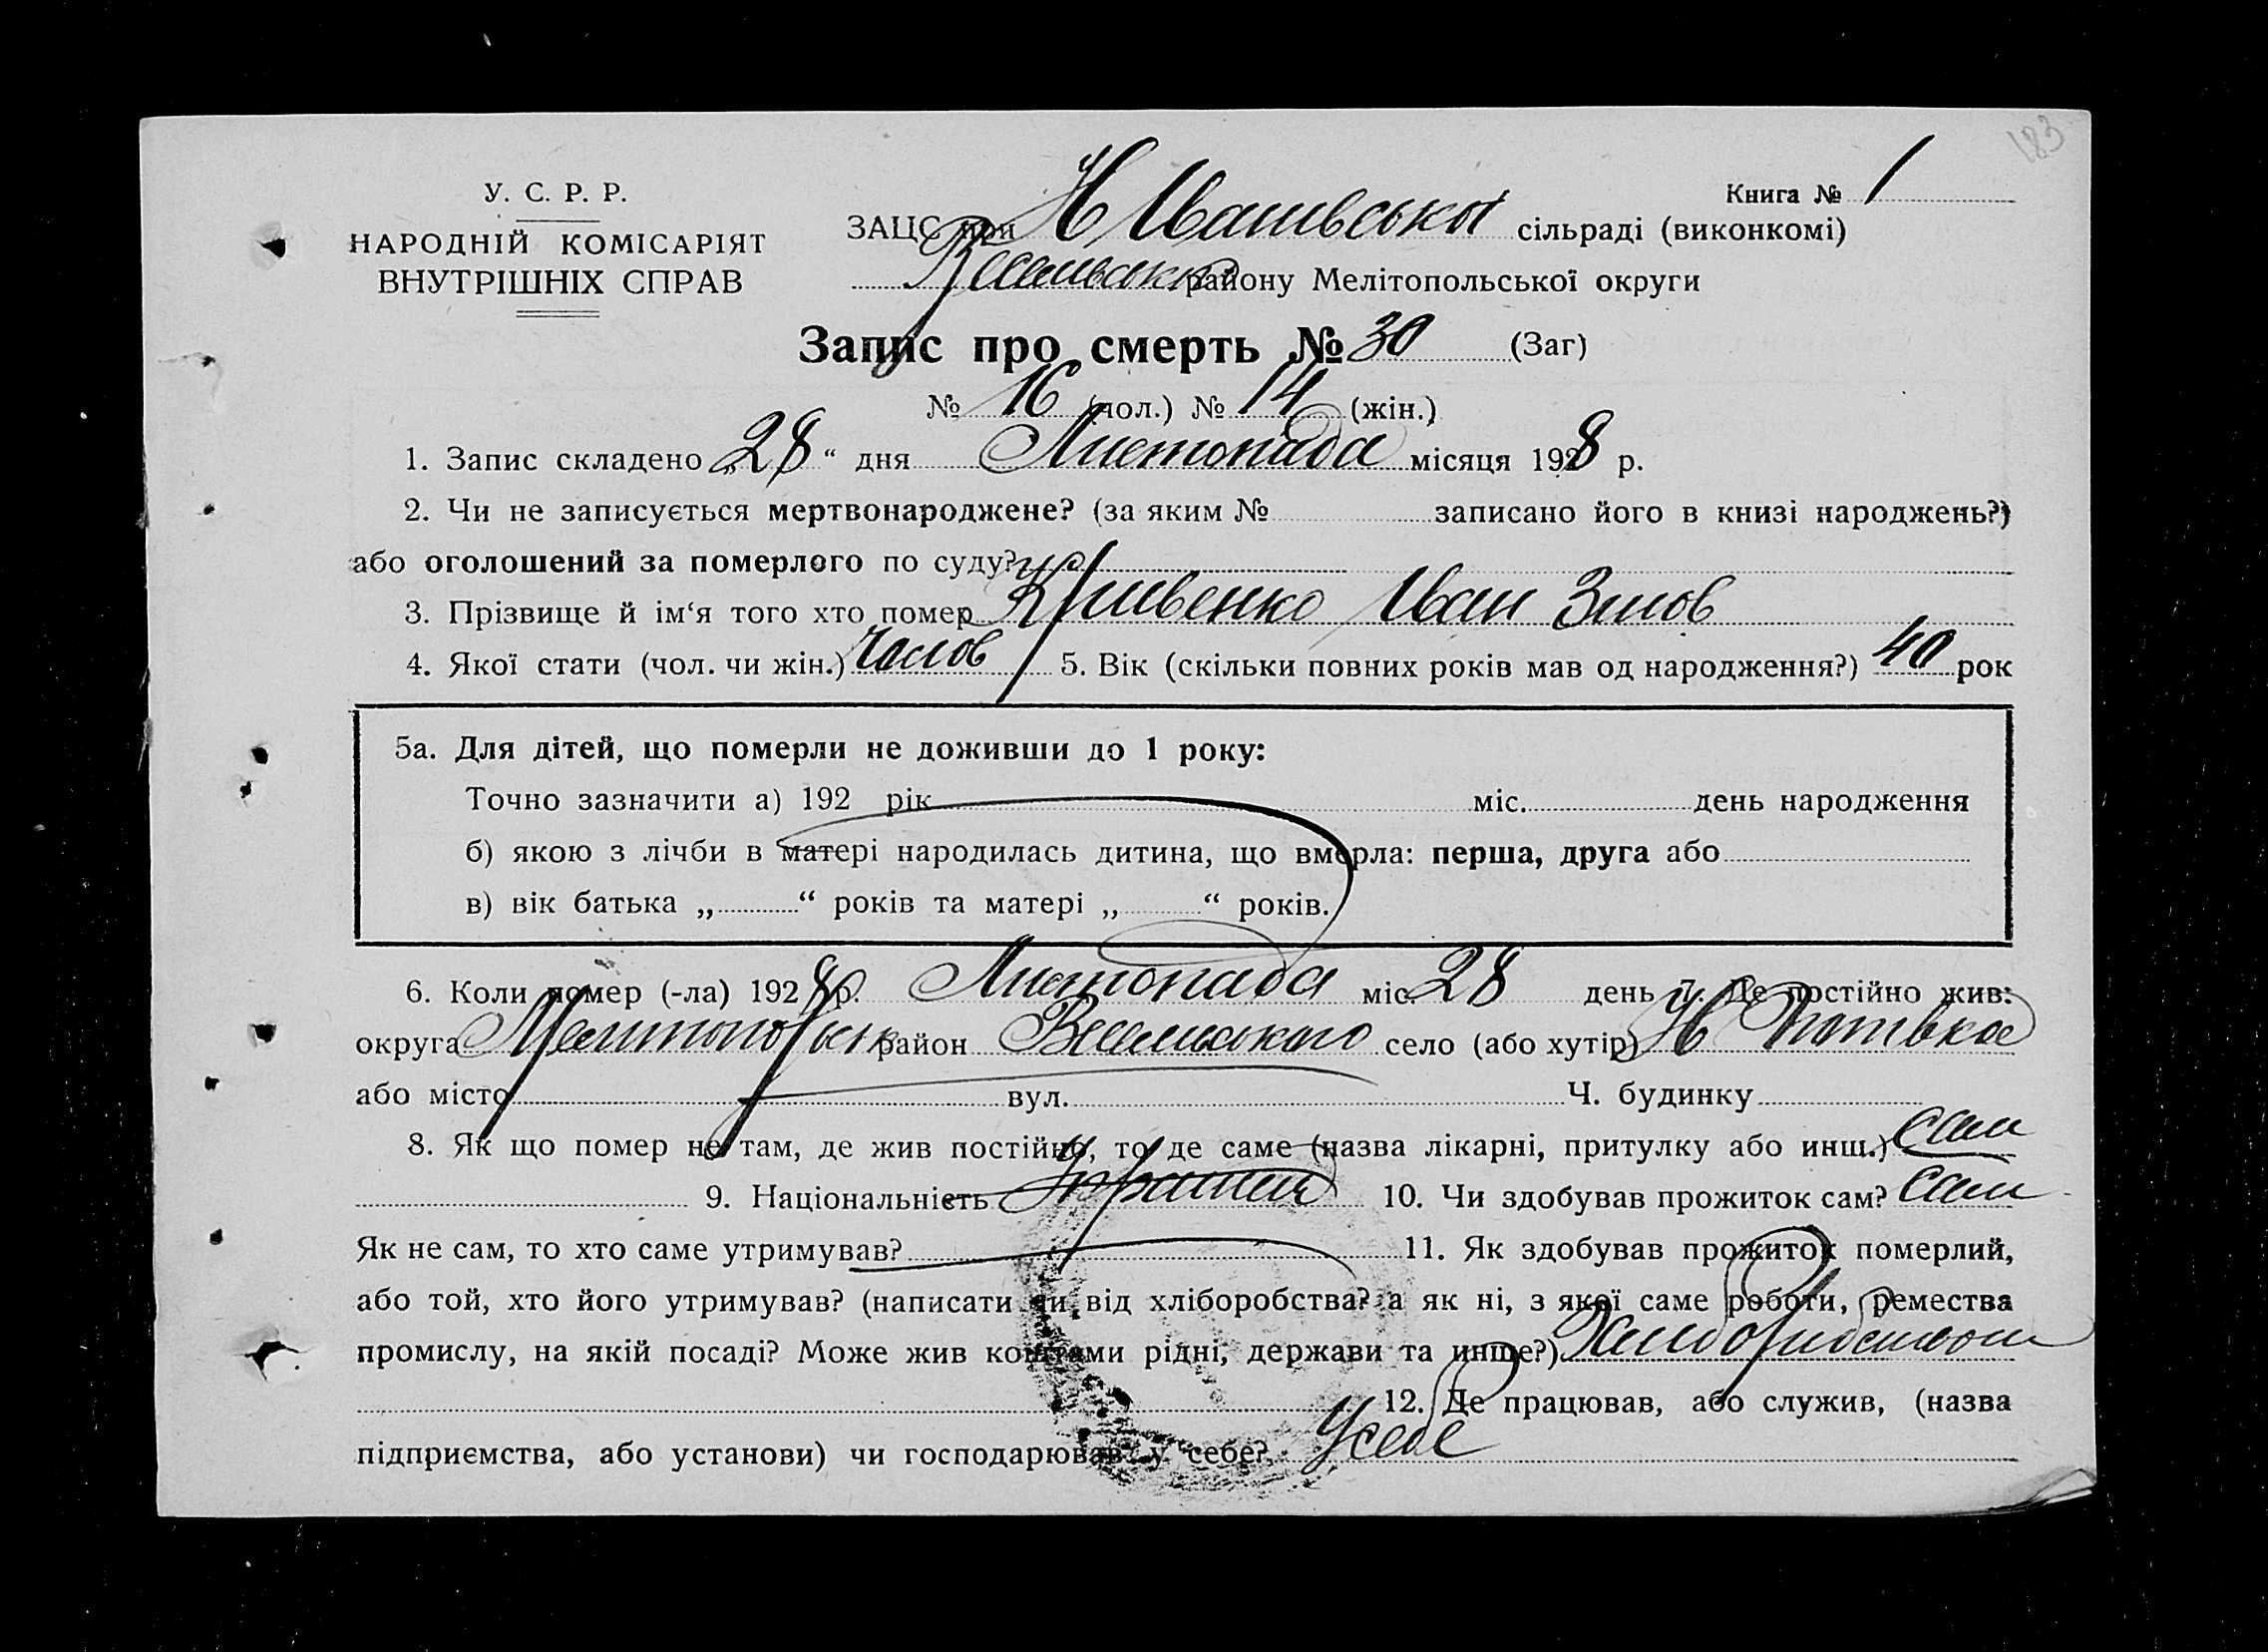 183
У. С. Р. Р.
Книга № 1
НАРОДНІЙ КОМІСАРІЯТ
ВНУТРІШНІХ СПРАВ
ЗАЦС при Н сільраді (виконкомі)
району Мелітопольської округи
Запис про смерть № 30 (Заг)
№ 16 (чол.) № 14 (жін.)
1. Запис складено „28“ дня Листопада місяця 1928 р.
2. Чи не записується мертвонароджене? (за яким № записано його в книзі народжень?)
або оголошений за померлого по суду? ні
3. Прізвище й ім‘я того хто помер Кривенко Иван
4. Якої стати (чол. чи жін.) 5. Вік (скільки повних років мав од народження?) 40 рок
5а. Для дітей, що померли не доживши до 1 року:
Точно зазначити а) 192 рік міс. день народження
б) якою з лічби в матері народилась дитина, що вмерла: перша, друга або
в) вік батька „ “ років та матері „ “ років.
6. Коли помер (-ла) 1928 р. Листопада міс. 28 день 7. Де постійно жив:
округа район село (або хутір) Н
або місто вул. Ч. будинку
8. Як що помер не там, де жив постійно, то де саме (назва лікарні, притулку або инш.) сам
9. Національність 10. Чи здобував прожиток сам? сам
Як не сам, то хто саме утримував? 11. Як здобував прожиток померлий,
або той, хто його утримував? (написати чи від хліборобства? а як ні, з якої саме роботи, ремества
промислу, на якій посаді? Може жив коштами рідні, держави та инше?)
12. Де працював, або служив, (назва
підприємства, або установи) чи господарював у себе? Усебе